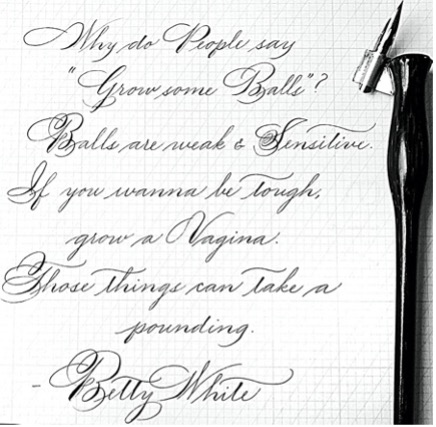 Why do People say
"Grow some Balls"?
Balls are weak & Sensitive.
If you wanna be tough,
grow a Vagina.
Those things can take a
pounding.
- Betty White